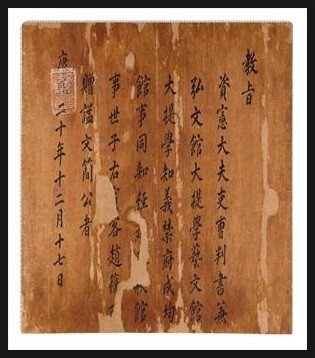 教旨
資憲大夫吏曹判書兼
弘文館大提學藝文館
大提學知義禁府成均
館事同知經 館
事世子右 客趙復
贈諡文簡公者
二十年十二月十七日